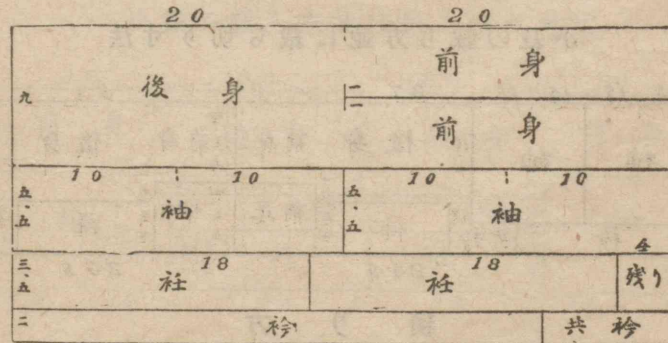 20 20
九 後身 前身
一
一
前身
10 10 10 10
五、五 袖 五、五 袖
三、五 衽 18 衽 18 全 残り
二 衿 共衿